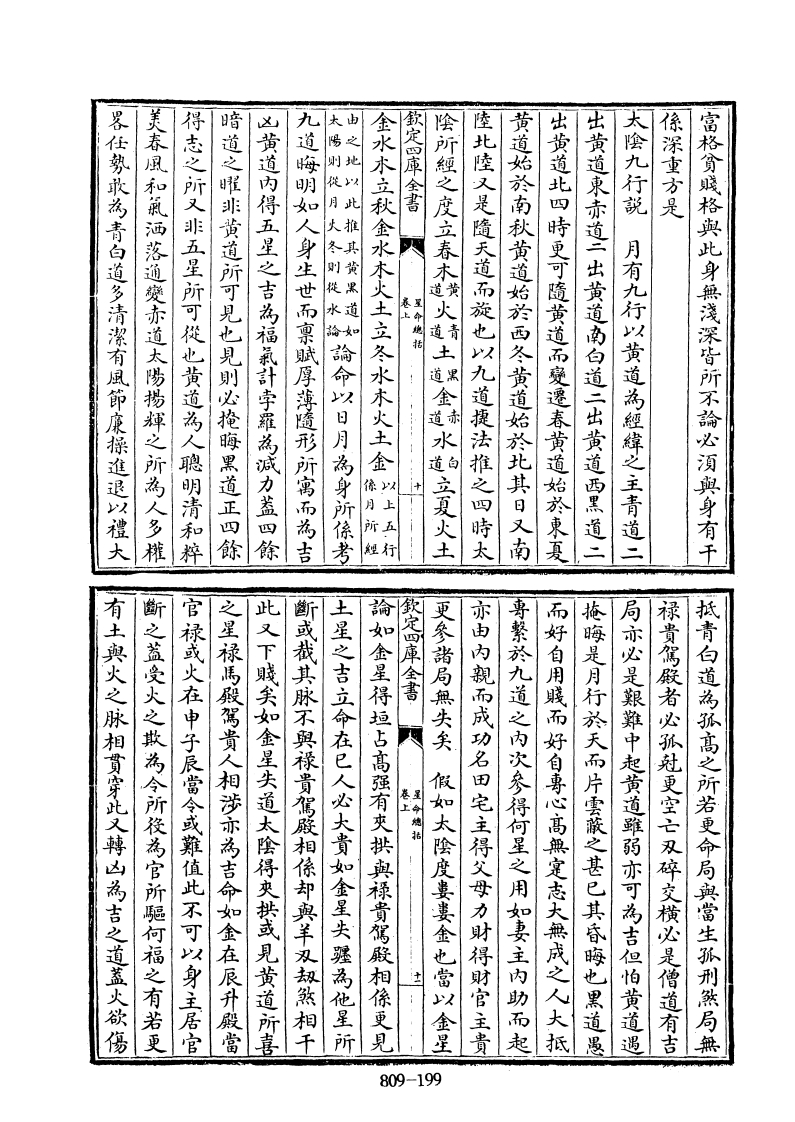 富格貧賤格與此身無淺深皆所不論必須與身有干
係深重方是
太陰九行説　月有九行以黄道為經緯之主青道二
出黄道東赤道二出黄道南白道二出黄道西黑道二
出黄道北四時更可隨黄道而變遷春黄道始於東夏
黄道始於南秋黄道始於西冬黄道始於北其日又南
陸北陸又是隨天道而旋也以九道捷法推之四時太
陰所經之度立春木黄道火青道土黑道金赤道水白道立夏火土
欽定四庫全書
星命總括
卷上
十
金水木立秋金水木火土立冬水木火土金以上五行係月所經
由之地以此推其黄黑道如太陽則從月大冬則從水論論命以日月為身所係考
九道晦明如人身生世而禀賦厚薄隨形所寓而為吉
凶黄道内得五星之吉為福氣計孛羅為减力蓋四餘
暗道之曜非黄道所可見也見則必掩晦黑道正四餘
得志之所又非五星所可從也黄道為人聰明清和粹
美春風和氣洒落通變赤道太陽揚輝之所為人多權
畧任勢敢為青白道多清潔有風節廉操進退以禮大
抵青白道為孤高之所若更命局與當生孤刑煞局無
禄貴駕殿者必孤尅更空亡刃碎交横必是僧道有吉
局亦必是艱難中起黄道雖弱亦可為吉但怕黄道遇
掩晦是月行於天而片雲蔽之甚已其昏晦也黑道愚
而好自用賤而好自專心高無寔志大無成之人大抵
專繫於九道之内次參得何星之用如妻主内助而起
亦由内親而成功名田宅主得父母力財得財官主貴
更參諸局無失矣　假如太陰度婁婁金也當以金星
欽定四庫全書
星命總括
卷上
十一
論如金星得垣占高强有夾拱與禄貴駕殿相係更見
土星之吉立命在巳人必大貴如金星失躔為他星所
斷或截其脉不與禄貴駕殿相係却與羊刃刼煞相干
此又下賤矣如金星失道太陰得夾拱或見黄道所喜
之星禄馬殿駕貴人相涉亦為吉命如金在辰升殿當
官禄或火在申子辰當令或難值此不可以身主居官
斷之蓋受火之欺為令所後為官所驅何福之有若更
有土與火之脉相貫穿此又轉凶為吉之道蓋火欲傷
809-199